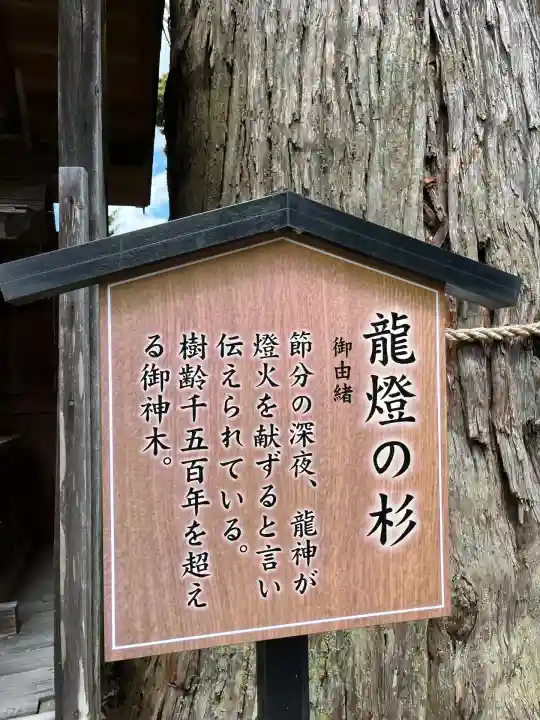 龍燈の杉
御由緒
節分の深夜、龍神が
燈火を献ずると言い
伝えられている。
樹齢千五百年を超え
る御神木。